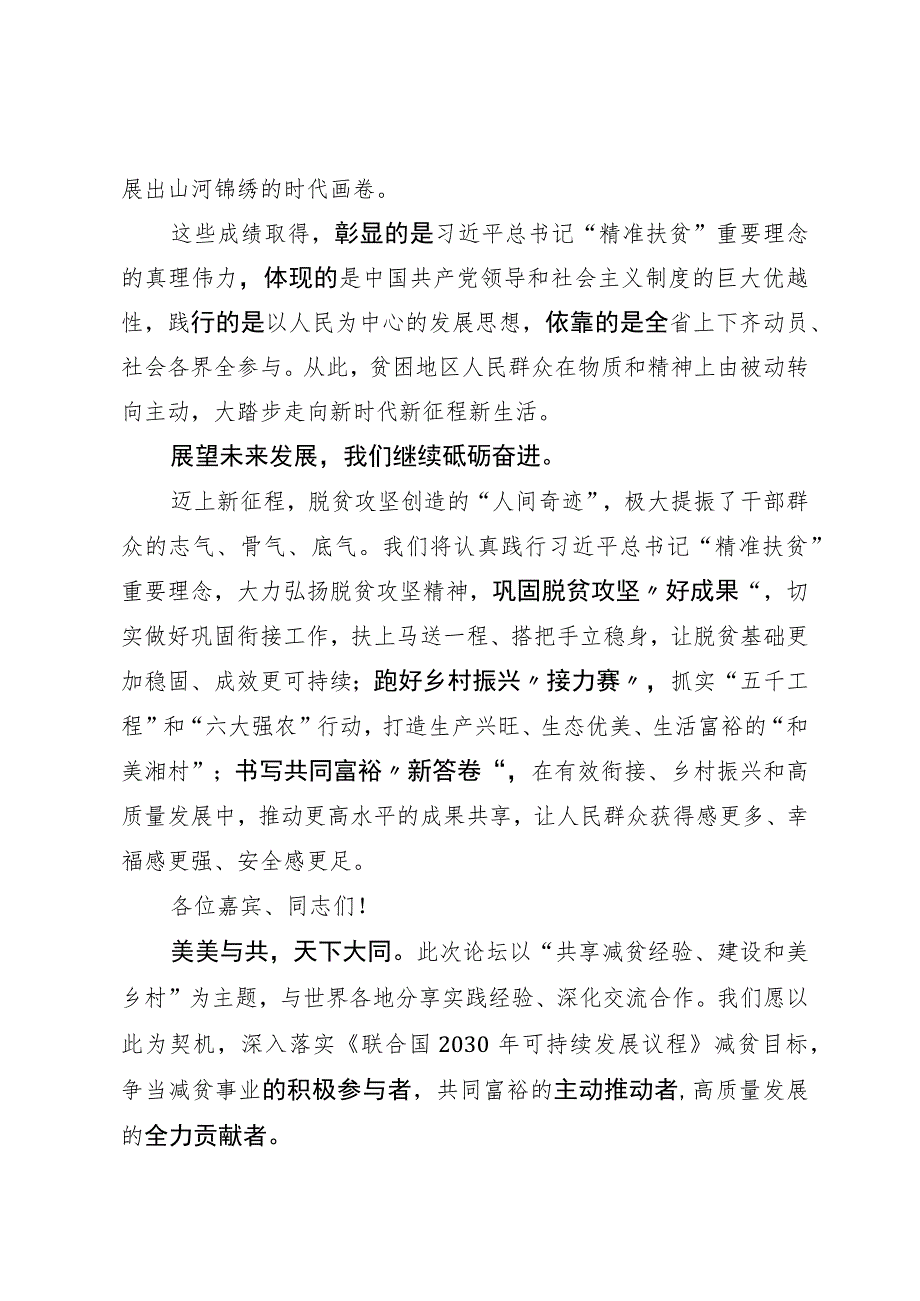 展出山河锦绣的时代画卷。
这些成绩取得，彰显的是习近平总书记“精准扶贫”重要理念
的真理伟力，体现的是中国共产党领导和社会主义制度的巨大优越
性，践行的是以人民为中心的发展思想，依靠的是全省上下齐动员、
社会各界全参与。从此，贫困地区人民群众在物质和精神上由被动转
向主动，大踏步走向新时代新征程新生活。
展望未来发展，我们继续砥砺奋进。
迈上新征程，脱贫攻坚创造的“人间奇迹”，极大提振了干部群
众的志气、骨气、底气。我们将认真践行习近平总书记“精准扶贫”
重要理念，大力弘扬脱贫攻坚精神，巩固脱贫攻坚〃好成果“，切
实做好巩固衔接工作，扶上马送一程、搭把手立稳身，让脱贫基础更
加稳固、成效更可持续；跑好乡村振兴〃接力赛〃，抓实“五千工
程”和“六大强农”行动，打造生产兴旺、生态优美、生活富裕的“和
美湘村”；书写共同富裕〃新答卷“，在有效衔接、乡村振兴和高
质量发展中，推动更高水平的成果共享，让人民群众获得感更多、幸
福感更强、安全感更足。
各位嘉宾、同志们！
美美与共，天下大同。此次论坛以“共享减贫经验、建设和美
乡村”为主题，与世界各地分享实践经验、深化交流合作。我们愿以
此为契机，深入落实《联合国 2030 年可持续发展议程》减贫目标，
争当减贫事业的积极参与者，共同富裕的主动推动者,高质量发展
的全力贡献者。